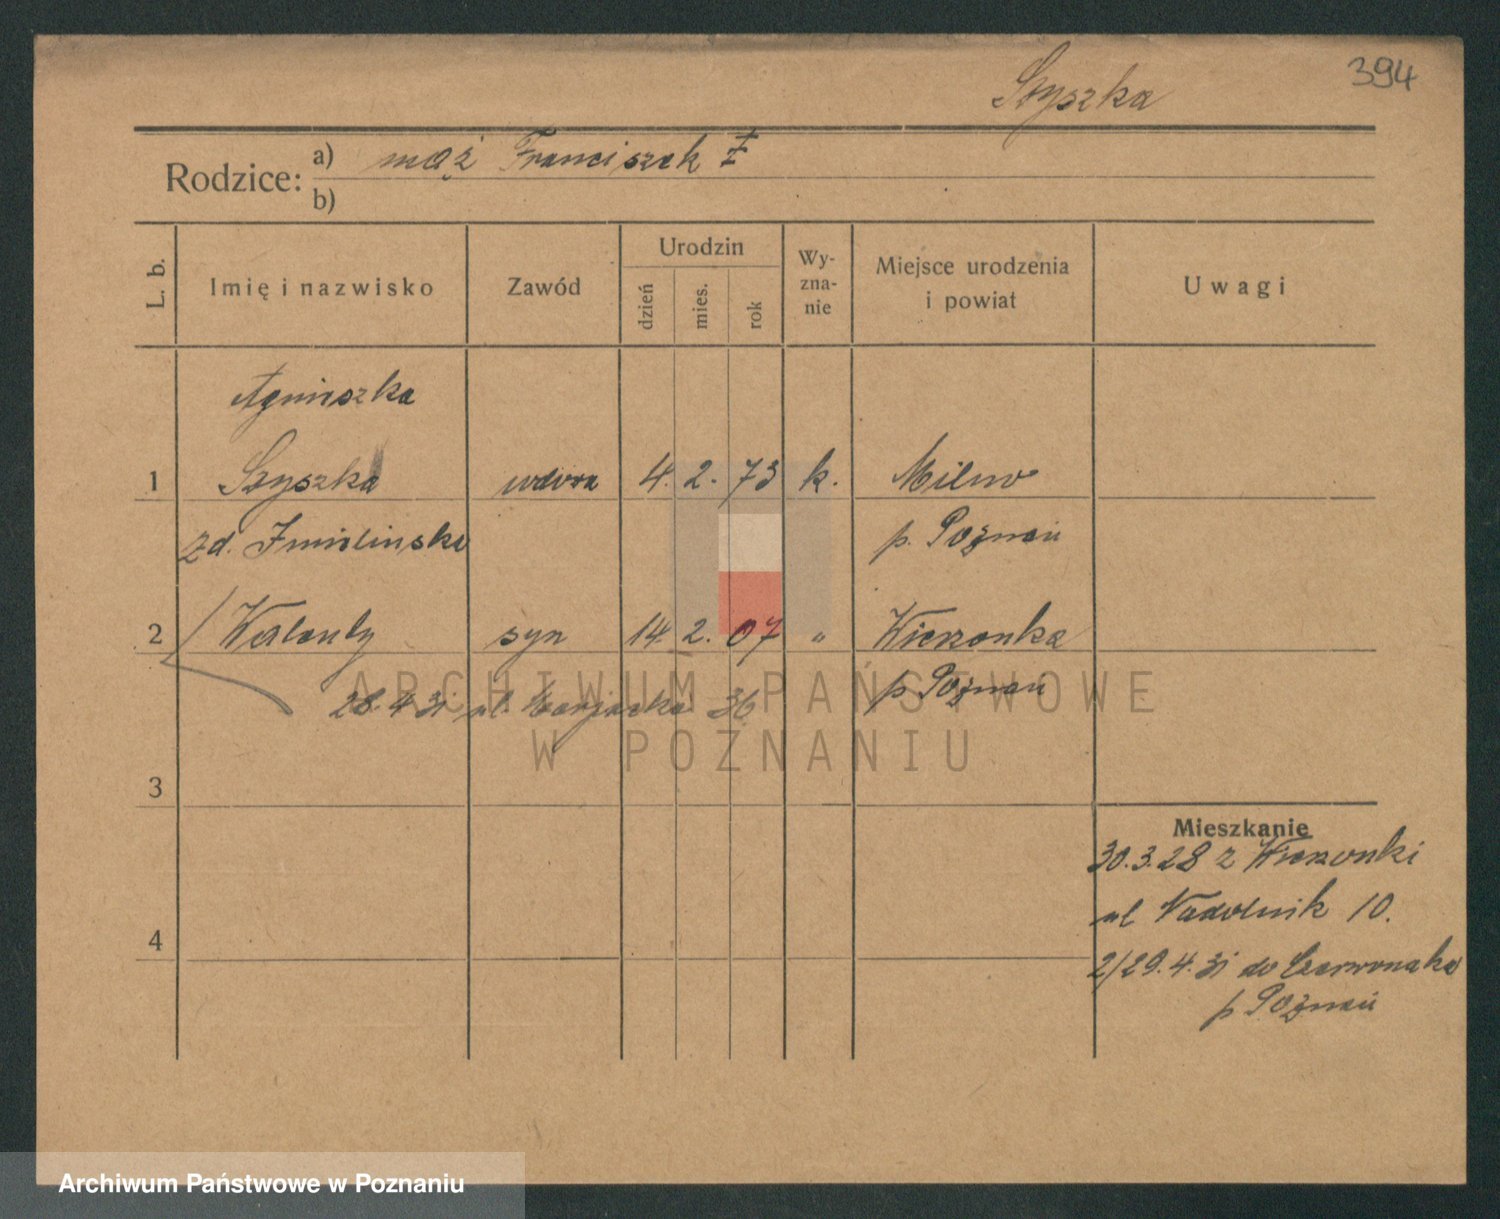 394
Szyszka
Rodzice: a) mąż Franciszek
b)
L. b. Imię i nazwisko Zawód Urodzin dzień mies. rok Wy-zna-nie Miejsce urodzenia i powiat Uwagi
Agnieszka
1 Szyszka wdowa 4. 2. 73 k. Milno
zd. p. Poznań
2 Walenty syn 14. 2. 07 " Wierzonka
p. Poznań
28.4.31 ul. 36
3
Mieszkanie
30.3.28 z Wierzonki
ul Nadolnik 10.
4
2/29.4.31 do Czerwonaka
p Poznań
ARCHIWUM PAŃSTWOWE
W POZNANIU
Archiwum Państwowe w Poznaniu